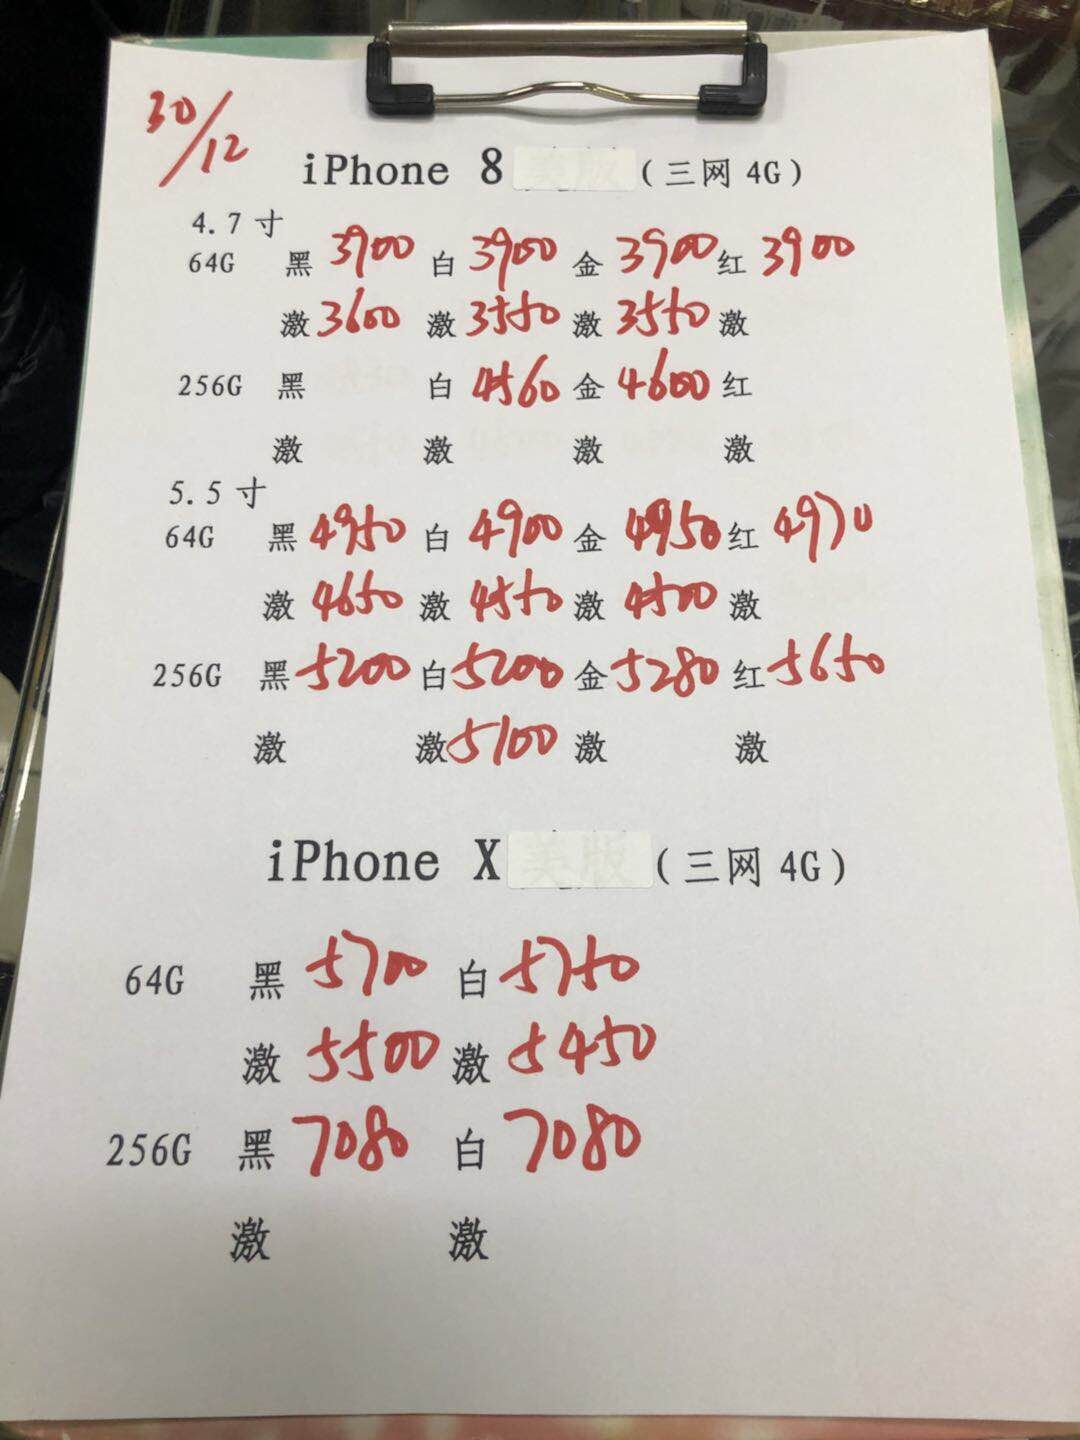 30/12
iPhone 8 美版 (三网 4G)
4.7 寸
64G 黑 3900 白 3900 金 3900 红 3900
激 3600 激 3550 激 3550 激
256G 黑 白 4560 金 4600 红
激 激 激 激
5.5 寸
64G 黑 4950 白 4900 金 4950 红 4970
激 4650 激 4550 激 4500 激
256G 黑 5200 白 5200 金 5280 红 5650
激 激 5100 激 激
iPhone X 美版 (三网 4G)
64G 黑 5700 白 5750
激 5500 激 5450
256G 黑 7080 白 7080
激 激